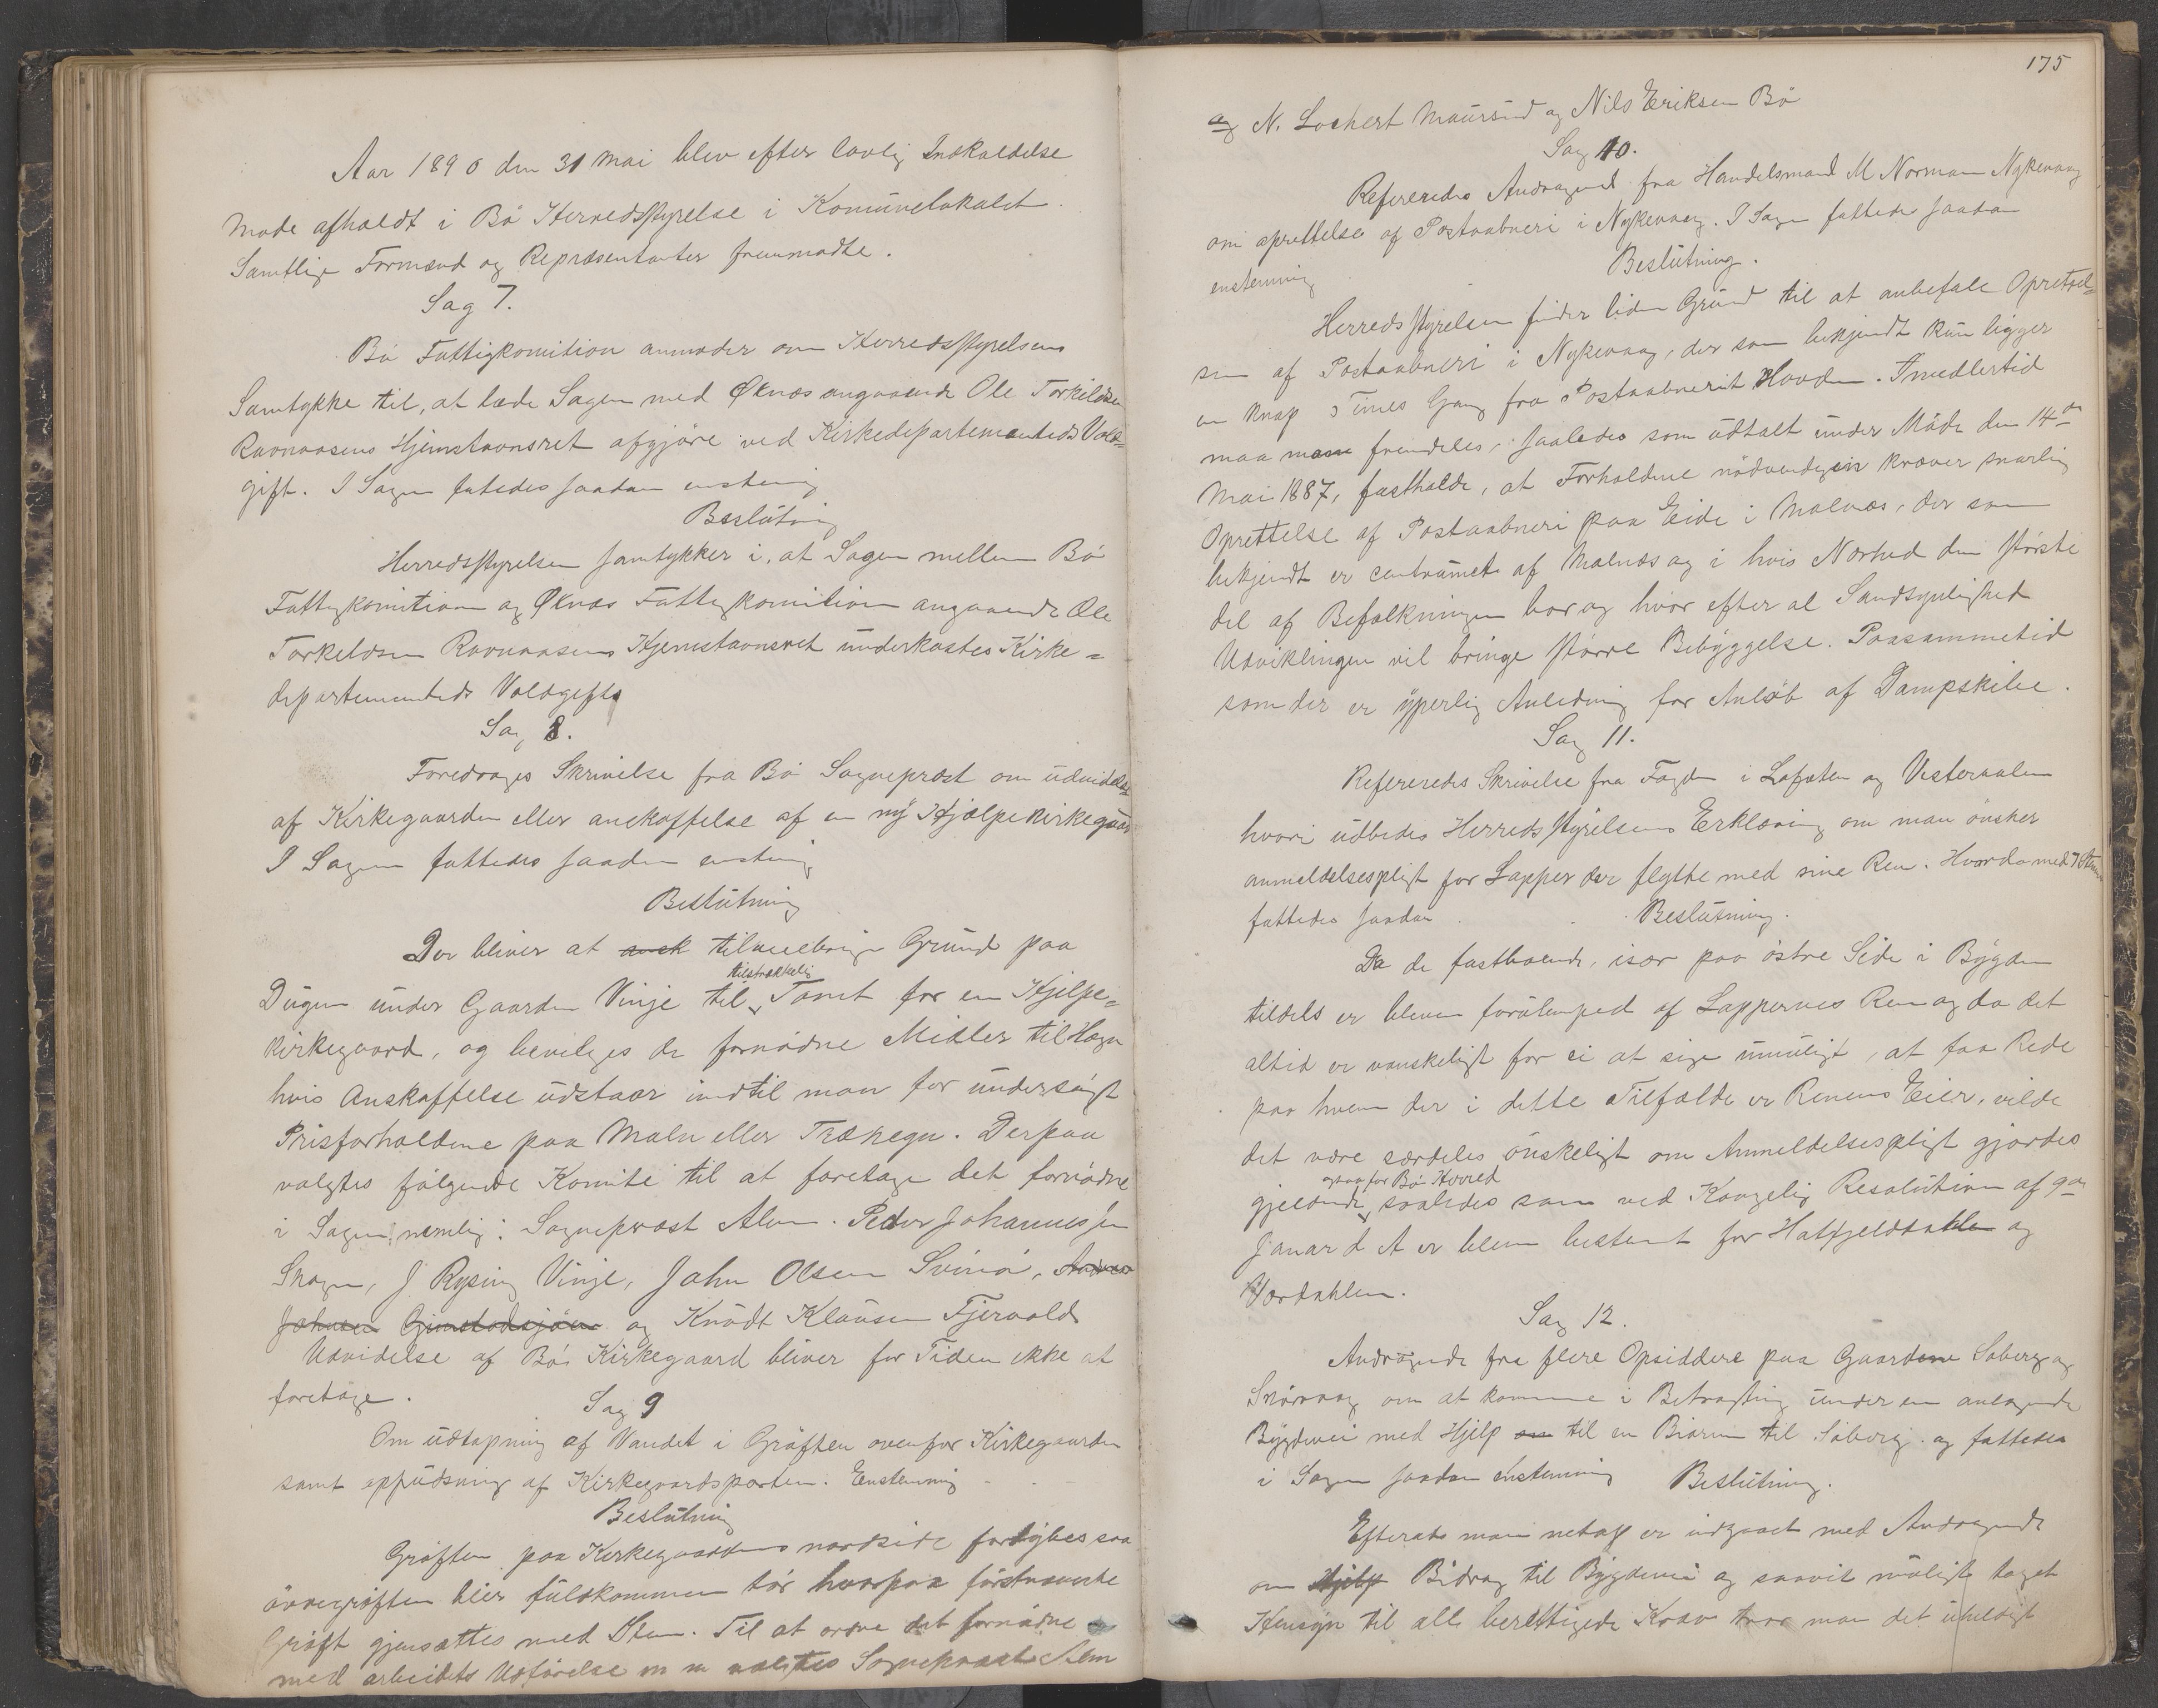 Aar 1890 den 31 Mai blev efter lovlig Indkaldelse
Møde afholdt i Bø Herredsstyrelse i Komunelokalet.
Samtlige Formænd og Repræsentanter fremmødte.
Sag 7.
Bø Fattigkomition anmoder om Herredsstyrelsens
Samtykke til, at lade Sagen med Øksnæs angaaende Ole Torkildsen
Ravnaasens Hjemstavnsret afgjøre ved Kirkedepartementeds Vold-
gift. I Sagen fatedes saadan enstemig
Beslutning
Herredsstyrelsen samtykker i, at Sagen mellem Bø
Fattigkomition og Øksnæs Fattigkomition angaaende Ole
Torkeldsen Ravnaasens Hjemstavnsret underkastes Kirke=
departementeds Voldgift
Sag 8.
Foredroges Skrivelse fra Bø Sogneprest om udvidelse
af Kirkegaarden eller anskaffelse af en ny Hjælpekirkegaar
I Sagen fattedes saadan enstemig
Beslutning
Der bliver at ansk tilveiebringe Grund paa
tilstrækkelig
Dugen under Gaarden Vinje til Tomt for en Hjelpe=
kirkegaard, og bevilges de fornødne Midler til Hegn
hvis Anskaffelse udstaar indtil man faar undersøgt
Prisforholdene paa Maln eller Træhegn. Derpaa
valgtes følgende Komite til at foretage det fornødne
i Sagen nemlig: Sogneprest Alm. Peder Johannessen
Skagen, J Rysing Vinje, John Olsen Svinø, Andreas
Johnsen Grimstadsjøen og Knudt Klausen Fjervold
Udvidelse af Bø Kirkegaard bliver for Tiden ikke at
foretage.
Sag 9
Om udtapning af Vandet i Grøften ovenfor Kirkegaarden
samt oppudsning af Kirkegaardsporten. Enstemig
Beslutning
Grøften paa Kirkegaardens nordside fordybes saa
øvregrøften blir fuldkommen tør hvorpaa førstnævnte
Grøft gjensættes med Sten. Til at ordne det fornødne
med arbeidets Udførelse m m valgtes Sogneprest Alm
175
og N. Lockert Maursund og Nils Eriksen Bø
Sag 10.
Refereredes Andragende fra Handelsmand M Norman Nykevaag
om oprettelse af Postaabneri i Nykevaag. I Sagen fattedes saadan
enstemig
Beslutning.
Herredsstyrelsen finder liden Grund til at anbefale Oprettel=
sen af Postaabneri i Nykevaag, der som bekjendt kun ligger
en knap Times Gang fra Postaabneriet Hovden. Imedlertid
maa man fremdeles, saaledes som udtalt under Møde den 14de
Mai 1887, fastholde, at Forholdene nødvendigvis kræver snarlig
Oprettelse af Postaabneri paa Eide i Malnæs, der som
bekjendt er centrumet af Malnæs og i hvis Nærhed den største
del af Befolkningen bor og hvor efter al Sandsynlighed
Udviklingen vil bringe større Bebyggelse. Paasammetid
som der er yperlig Anledning for Anløb af Dampskibe.
Sag 11.
Refereredes Skrivelse fra Fogden i Lofoten og Vesteraalen
hvori udbedes Herredsstyrelsens Erklæring om man ønsker
anmeldelsespligt for Lapper der flytte med sine Ren. Hvorda med 7 Stem
fattedes saadan Beslutning.
Da de fastboende, især paa østre Side i Bygden
tildels er bleven forulemped af Lappernes Ren og da det
altid er vanskeligt for ei at sige umuligt, at faa Rede
paa hvem der i dette Tilfælde er Renens Eier, vilde
det være særdeles ønskeligt om Anmeldelsespligt gjordes
ogsaa for Bø Herred
gjeldende saaledes som ved Kongelig Resolution af 9de
Januar d A er bleven bestemt for Hatfjelddahlen og
Værdahlen.
Sag 12.
Andragende fra flere Opsiddere paa Gaardene Søberg og
Skørvaag om at komme i Betragtning under en anlagende
Bygdevei med Hjelp om til en Biarm til Søberg. og fattedes
i Sagen saadan enstemig Beslutning.
Efterat man netop er indgaaet med Andragende
om Hjelp Bidrag til Bygdevei og saavit muligt taget
Hensyn til alle berettigede Krav tror man det uheldigt